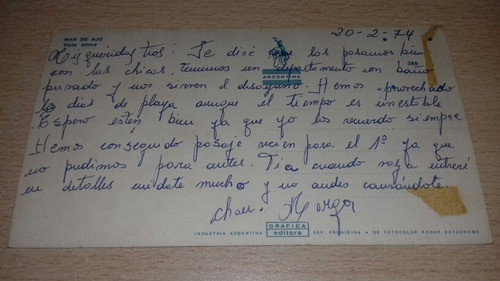 MAR DE AJO
Vista aérea
20-2-74
Mis queridos tios: Te diré que los pasamos bien
con las chicas, tenemos un departamento con baño
privado y nos sirven el desayuno. Hemos aprovechado
los dias de playa aunque el tiempo es inestable
Espero estén bien ya que yo los recuerdo siempre
Hemos conseguido pasaje recien para el 1º ya que
no pudimos para antes. Tia cuando vaya entraré
en detalles cuidate mucho y no andes cansándote.
chau.
ARGENTINA
INDUSTRIA ARGENTINA
GRAFICA
editora
REP. PROHIBIDA • DE FOTOCOLOR KODAK EKTACHROME